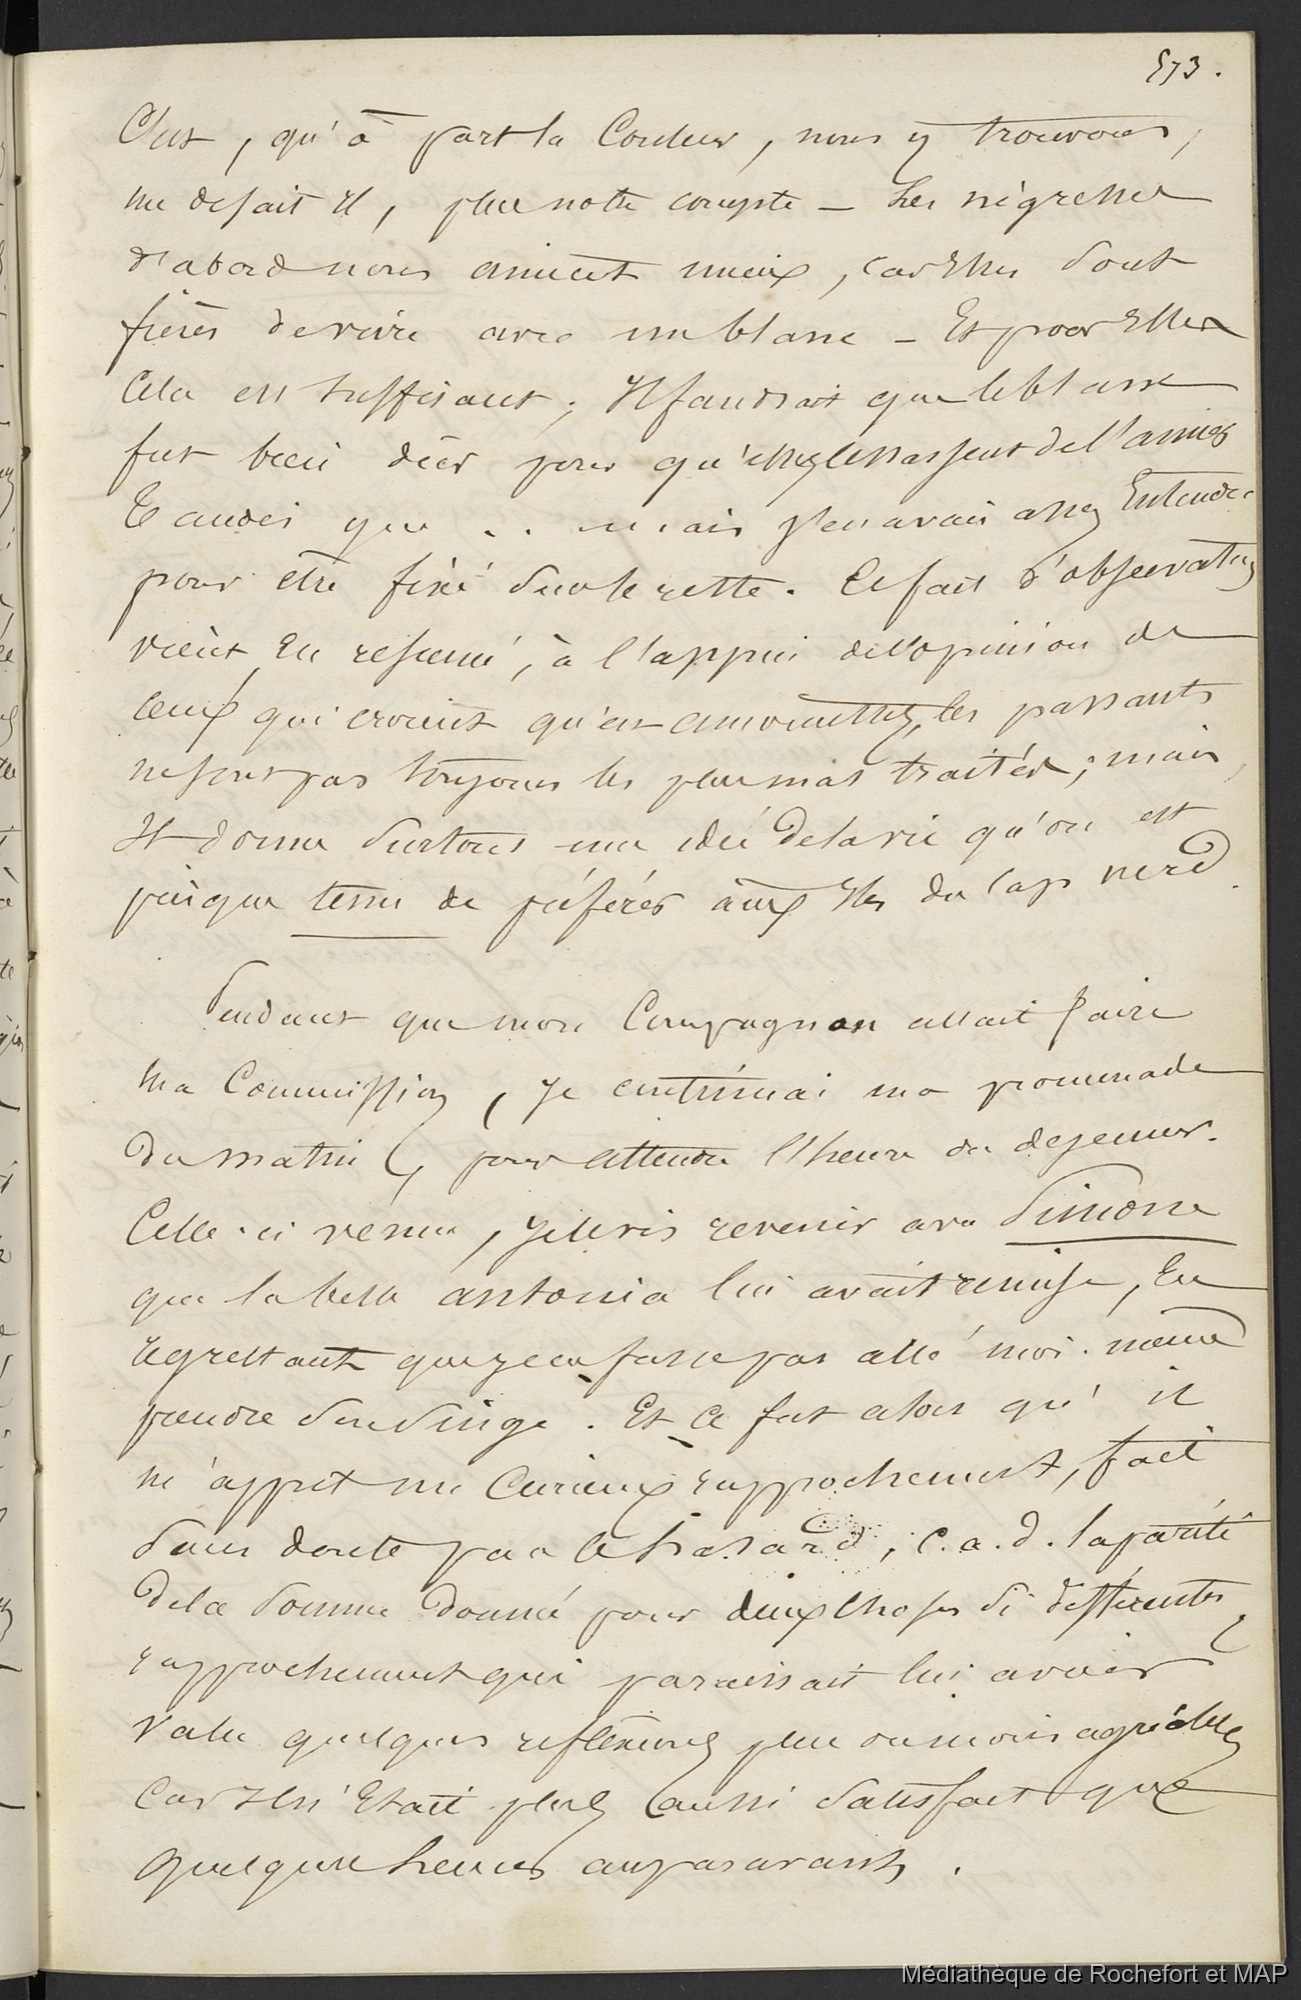 573.
C'est, qu'à part la Couleur, nous y trouvons,
me disait il, plus notre compte — Les négresses
d'abord nous aiment mieux, car Elles sont
fières de vivre avec un blanc — Et pour Elles
Cela est suffisant; Il faudrait que le blanc
fut bien dur pour qu'elles cessassent de l'aimer
Tandis que ... mais j'en avais assez Entendu
pour être fixé sur le reste. Ce fait d'observation
vient, En resumé, à l'appui de l'opinion de
ceux qui croient qu'en amourettes, les passants
ne sont pas toujours les plus mal traités; mais,
Il donne surtout une idée de la vie qu'on est
presque tenu de préférer aux Iles du Cap verd.
Pendant que mon Compagnon allait faire
ma Commission, Je continuai ma promenade
du matin, pour attendre l'heure du dejeuner.
Celle-ci venue, Je le vis revenir avec Simone
que la belle antonia lui avait remise, En
regrettant que je ne fusse pas allé moi-même
prendre son Singe. Et Ce fut alors qu'il
m'apprit un Curieux rapprochement, fait
sans doute par le hasard, c.a.d. la parité
de la somme donnée pour deux choses si differentes,
rapprochement qui paraissait lui avoir
valu quelques reflexions plus ou moins agréables
Car Il n'Etait plus aussi satisfait que
quelques heures auparavant.
Médiathèque de Rochefort et MAP